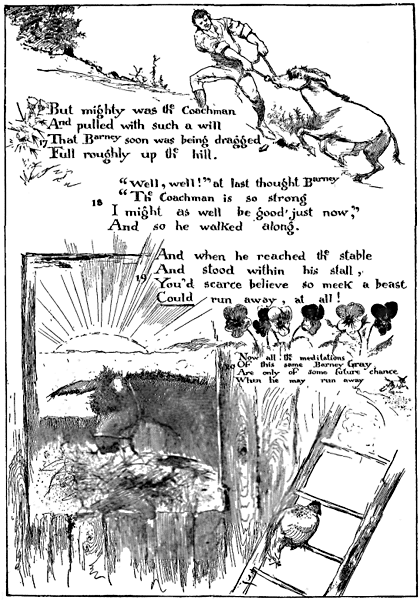 But mighty was the Coachman
17 And pulled with such a will
That Barney soon was being dragged
Full roughly up the hill.
"Well, well!" at last thought Barney
18 "The Coachman is so strong
I might as well be good just now,"
And so he walked along.
And when he reached the stable
19 And stood within his stall,
You'd scarce believe so meek a beast
Could run away, at all!
20 Now all the meditations
Of this same Barney Gray
Are only of some future chance
When he may run away